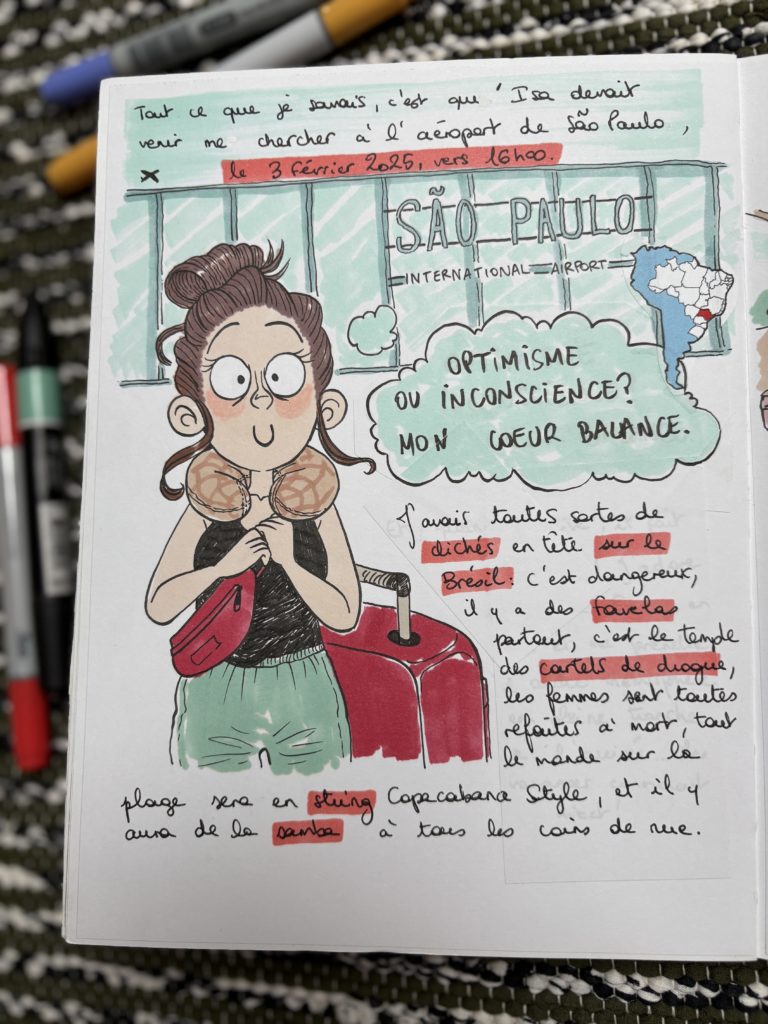 Tout ce que je savais, c'est que Isa devait
venir me chercher à l'aéroport de São Paulo,
le 3 février 2025, vers 16h00.
SÃO PAULO
INTERNATIONAL AIRPORT
OPTIMISME
OU INCONSCIENCE?
MON COEUR BALANCE.
J'avais toutes sortes de
clichés en tête sur le
Brésil: c'est dangereux,
il y a des favelas
partout, c'est le temple
des cartels de drogue,
les femmes sont toutes
refaites à mort, tout
le monde sur la
plage sera en string Copacabana Style, et il y
aura de la samba à tous les coins de rue.